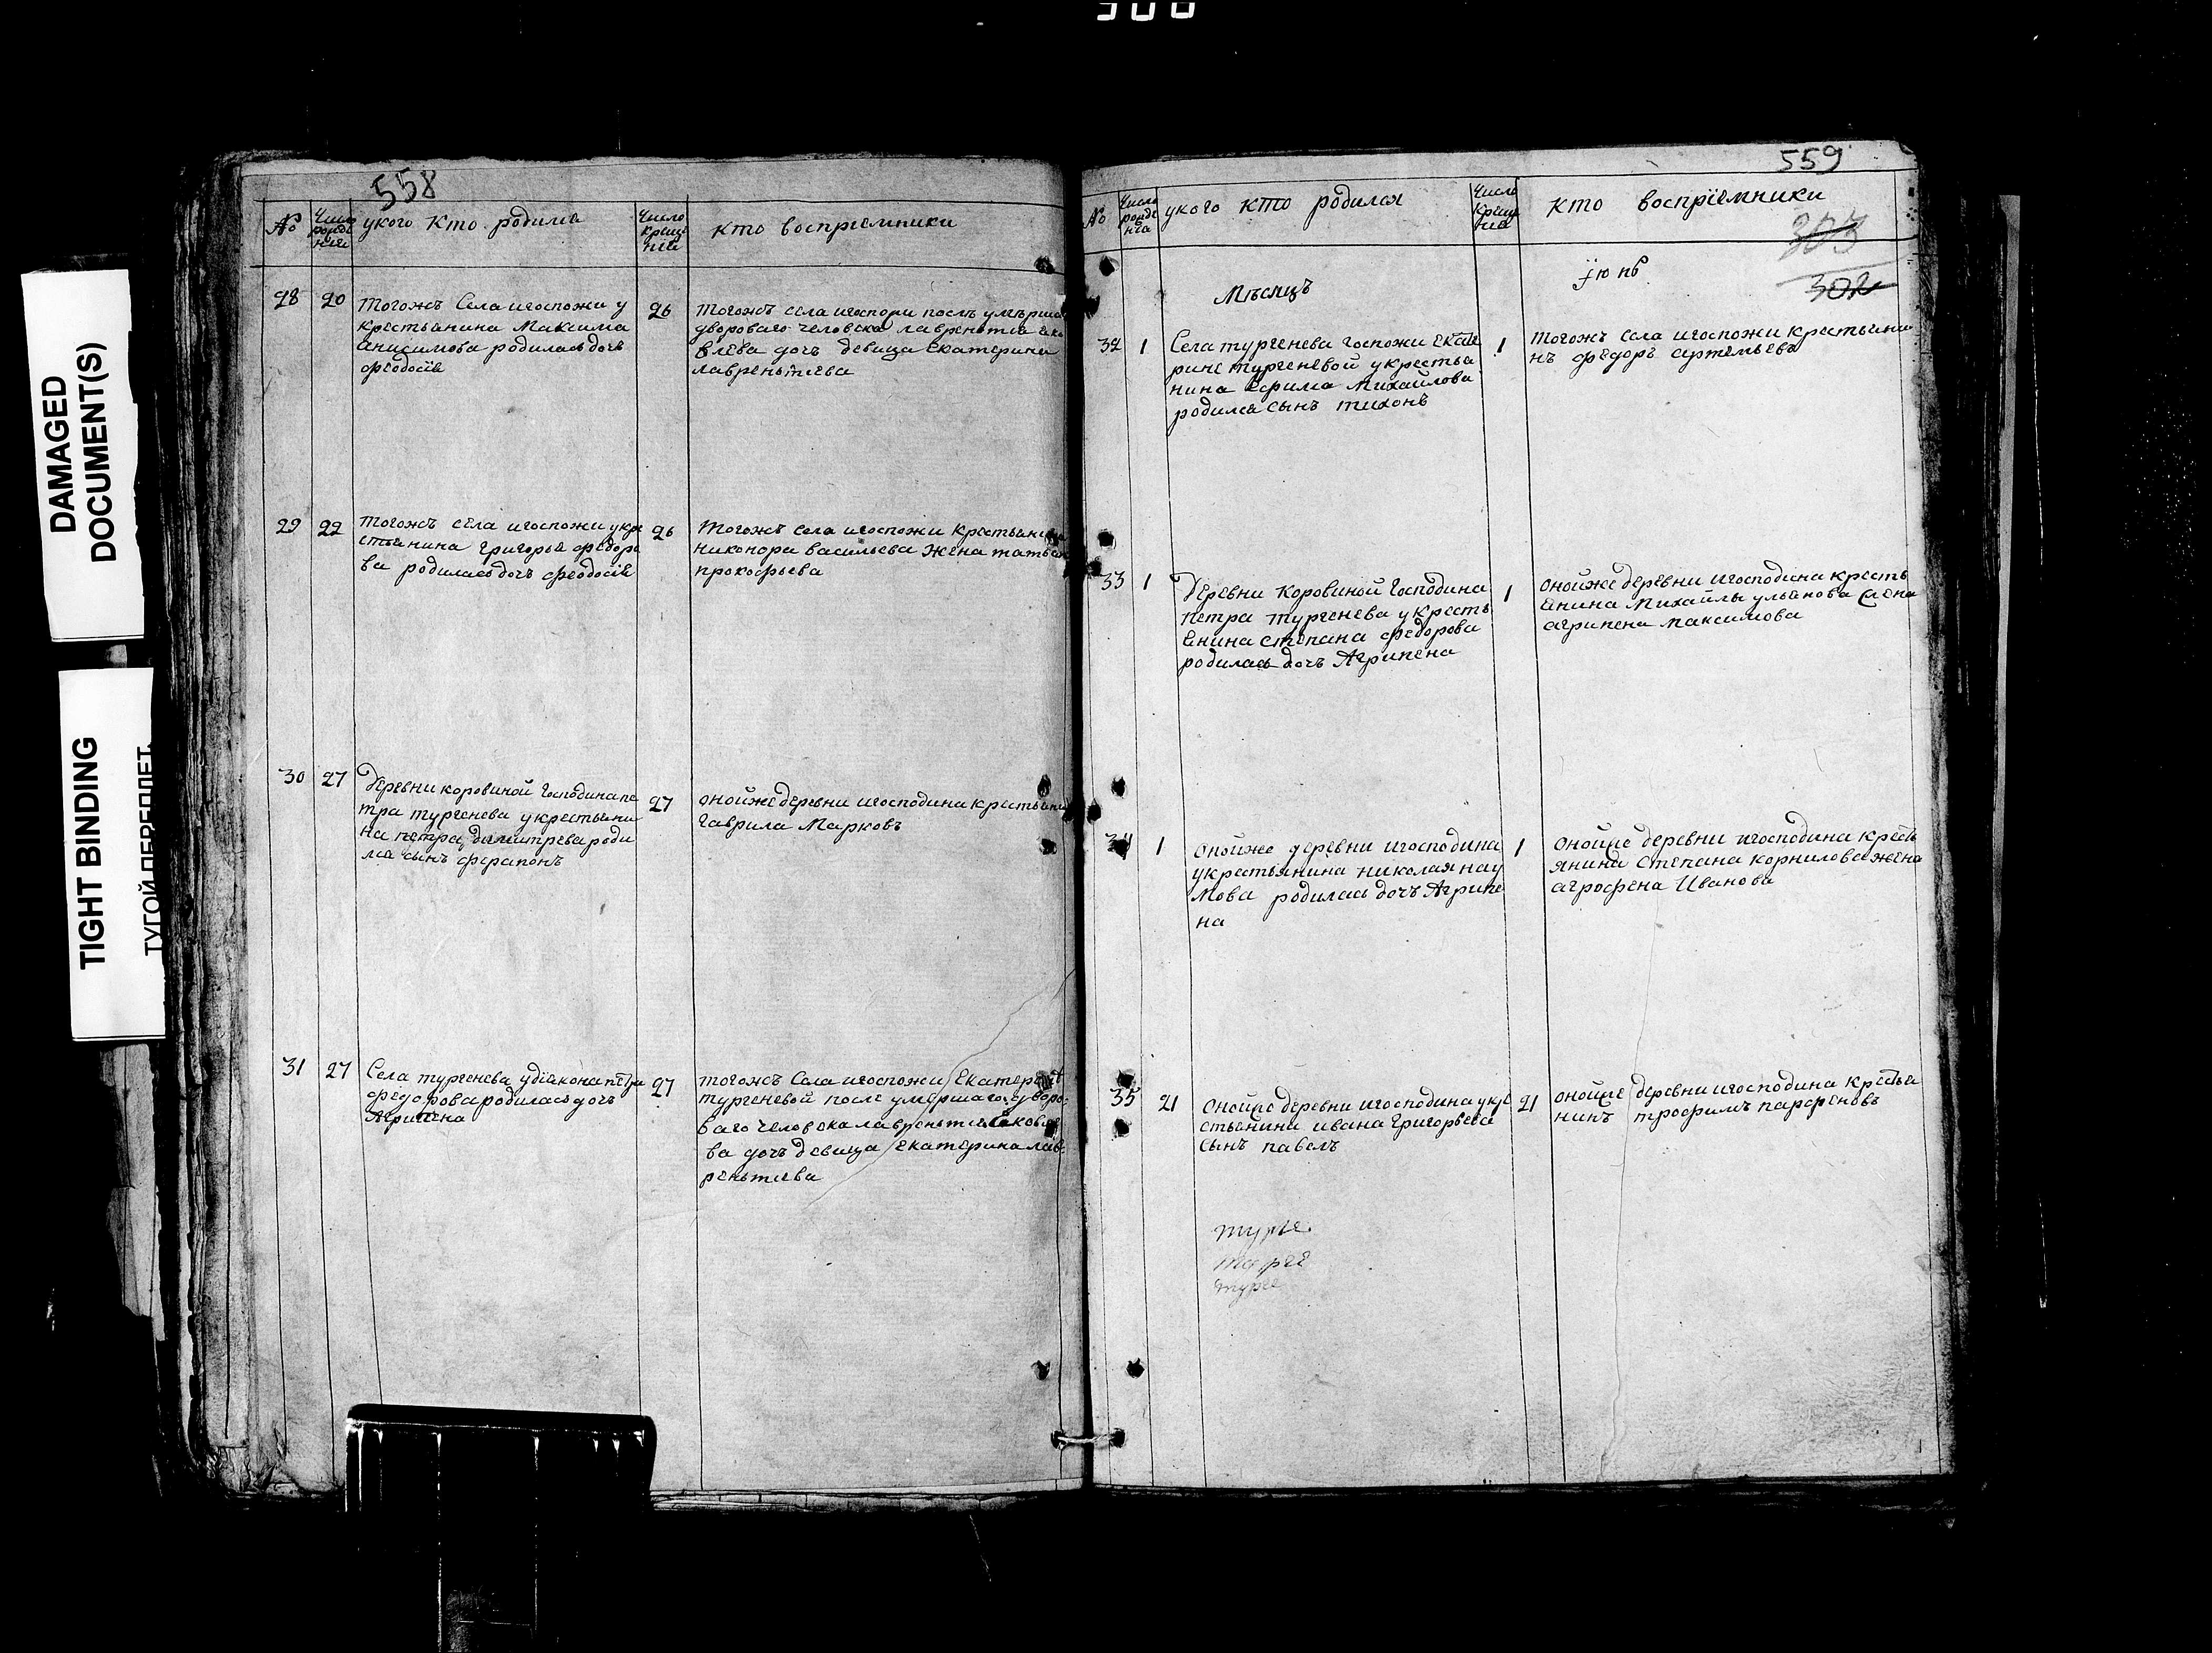 500
DAMAGED
DOCUMENT(S)
TIGHT BINDING
ТУГОЙ ПЕРЕПЛЕТ
558
№
Число
рожде
нiя
укого кто родился
Число
креще
нiя
кто восприемники
28
20
тогожъ Села игоспожи у
крестьянина Максима
Анисимова родиласъ дочь
феодосiя
26
тогожъ села игоспожи послъ умърша
двороваго человека лаврентiя яко
влева дочь девица Екатерина
лаврентиева
29
22
тогожъ села игоспожи укре
стьянина Григорья федоро
ва родиласъ дочь феодосiя
26
тогожъ села игоспожи крестьянина
никонора васильева жена татьяна
прокофьева
30
27
деревни коровиной господина пе
тра тургенева укрестьяни
на петра димитрева роди
лся сынъ ферапонъ
27
онойже деревни игосподина крестьянинъ
гаврила Марковъ
31
27
Села тургенева удiякона петра
федорова родиласъ дочь
Агрипена
27
тогожъ Села игоспожи Екатерины
тургеневой после умершаго дворо
ваго человека лаврентия яковле
ва дочь девица Екатерина лав
рентиева
559
№
Число
рожде
нiя
укого кто родился
Число
креще
нiя
кто воспрiемники
303
302
Мѣсяцъ
iюнь
32
1
Села тургенева госпожи Екате
рине тургеневой укрестья
нина Ефима Михайлова
родился сынъ тихонъ
1
тогожъ села игоспожи крестьяни
нъ федоръ артемьевъ
33
1
деревни коровиной господина
петра тургенева укресть
янина степана федорова
родиласъ дочь Агрипена
1
онойже деревни игосподина кресть
янина Михайлы ульянова жена
агрипена максимова
34
1
онойже деревни игосподина
укрестьянина николая нау
мова родиласъ дочь Агрипе
на
1
онойже деревни игосподина кресть
янина степана корнилова жена
агрофена Иванова
35
21
онойже деревни игосподина укре
стьянина ивана Григорьева
сынъ павелъ
21
онойже деревни игосподина крестья
нинъ трофимъ парфеновъ
турге
турге
турге